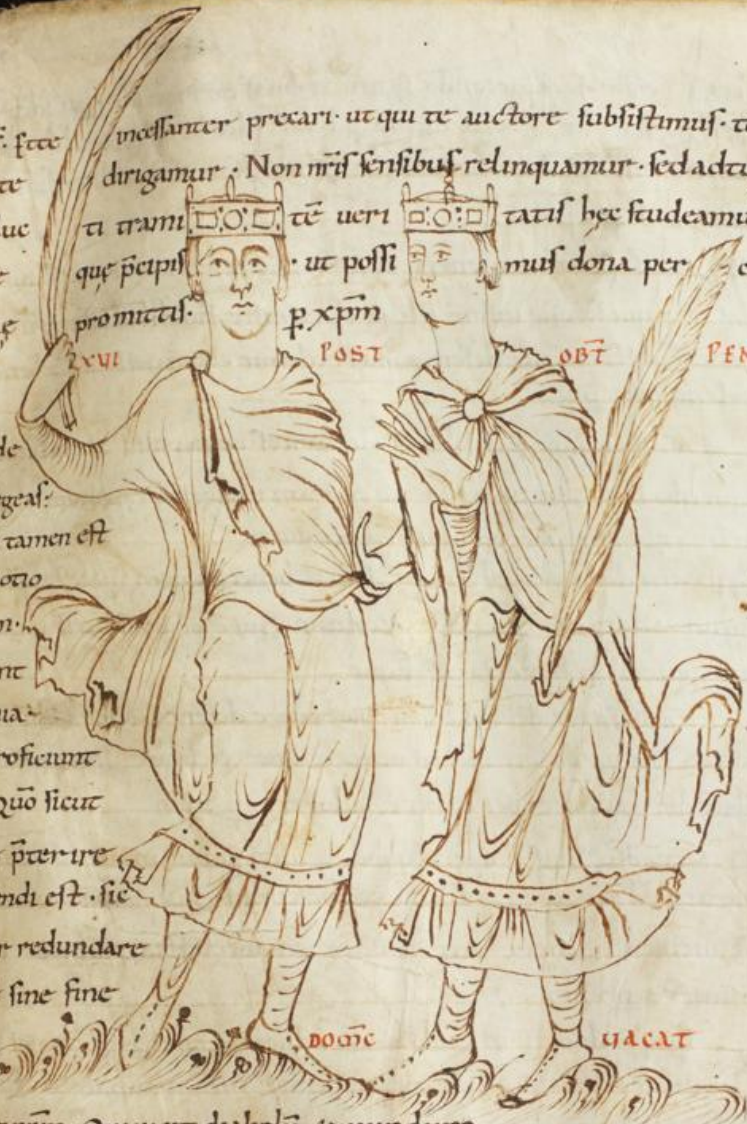 incessanter precari · ut qui te auctore subsistimus · t
te dirigamur · Non nr̄is sensibus relinquamur · sed ad tu
ti trami tē ueri tatis hęc studeamu
quę p̄cipis · ut possi mus dona per
promittis · ꝑ xp̄m
XVI POST OBT̄ PEN
de
egeas:
tamen est
otio
n·
nt
na·
roficiunt
Quō sicut
p̄terire
ndi est · sic
r redundare
sine fine
DOM̄C UACAT